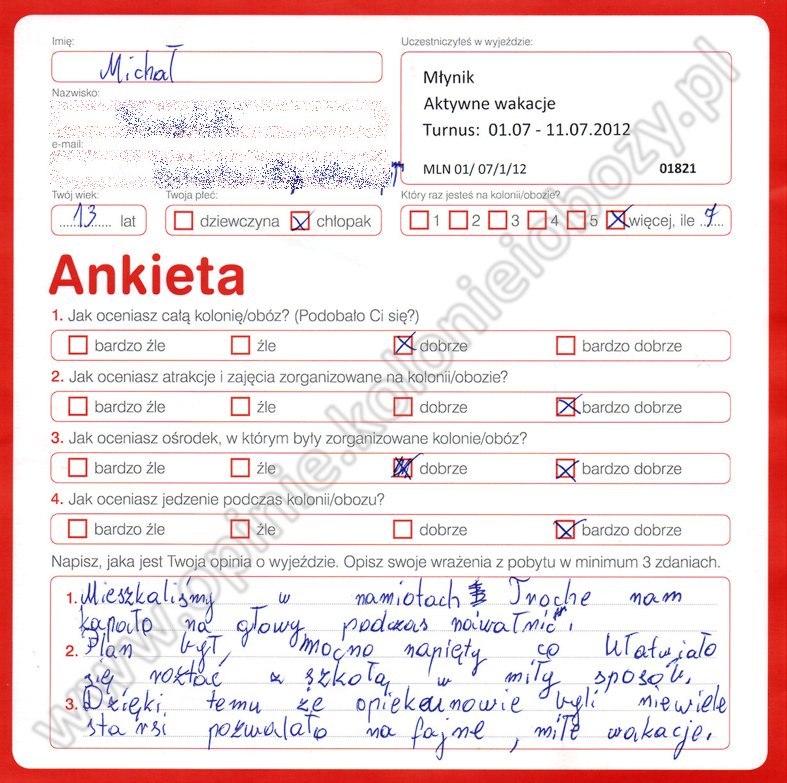 Imię:
Michał
Uczestniczyłeś w wyjeździe:
Młynik
Aktywne wakacje
Turnus: 01.07 - 11.07.2012
MLN 01/ 07/1/12 01821
Nazwisko:
e-mail:
Twój wiek:
13 lat
Twoja płeć:
dziewczyna chłopak
Który raz jesteś na kolonii/obozie?
1 2 3 4 5 więcej, ile 7
Ankieta
1. Jak oceniasz całą kolonię/obóz? (Podobało Ci się?)
bardzo źle źle dobrze bardzo dobrze
2. Jak oceniasz atrakcje i zajęcia zorganizowane na kolonii/obozie?
bardzo źle źle dobrze bardzo dobrze
3. Jak oceniasz ośrodek, w którym były zorganizowane kolonie/obóz?
bardzo źle źle dobrze bardzo dobrze
4. Jak oceniasz jedzenie podczas kolonii/obozu?
bardzo źle źle dobrze bardzo dobrze
Napisz, jaka jest Twoja opinia o wyjeździe. Opisz swoje wrażenia z pobytu w minimum 3 zdaniach.
1. Mieszkaliśmy w namiotach Troche nam
kapało na głowy podczas nawałnic.
2. Plan był, mocno napięty co Ułatwiało
się roztać z szkołą w miły sposób.
3. Dzięki temu że opiekunowie byli niewiele
starsi pozwalało na fajne, miłe wakacje.
www.opinie.kolonieiobozy.pl